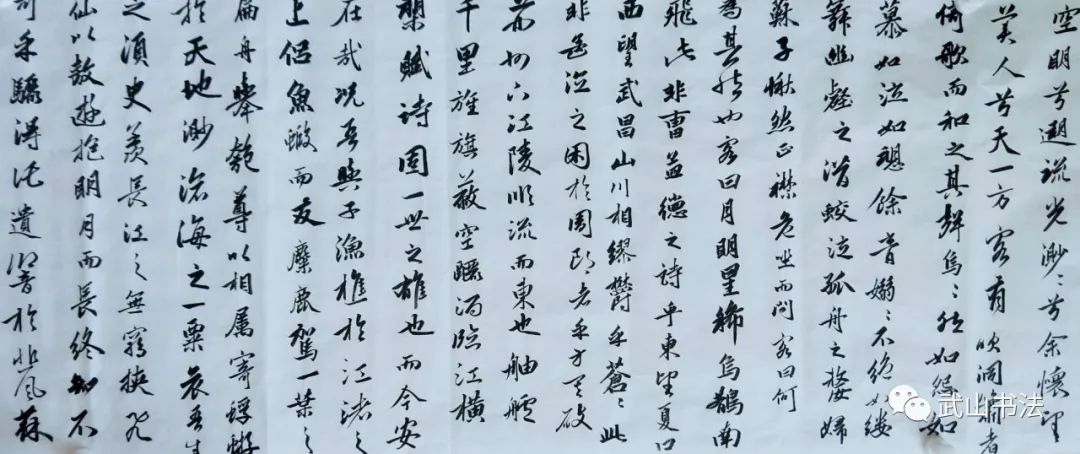 空明兮遡流光渺〻兮余懷望
美人兮天一方客有吹洞簫者
倚歌而和之其聲烏〻然如怨如
慕如泣如訴餘音嫋〻不絕如縷
舞幽壑之潛蛟泣孤舟之嫠婦
蘇子愀然正襟危坐而問客曰何
為其然也客曰月明星稀烏鵲南
飛此非曹孟德之詩乎東望夏口
西望武昌山川相繆鬱乎蒼〻此
非孟德之困於周郎者乎方其破
荊州下江陵順流而東也舳艫
千里旌旗蔽空釃酒臨江橫
槊賦詩固一世之雄也而今安
在哉況吾與子漁樵於江渚之
上侶魚蝦而友麋鹿駕一葉之
扁舟舉匏尊以相屬寄蜉蝣
於天地渺滄海之一粟哀吾生
之須臾羨長江之無窮挾飛
仙以敖遊抱明月而長終知不
可乎驟得託遺響於悲風蘇
武山书法